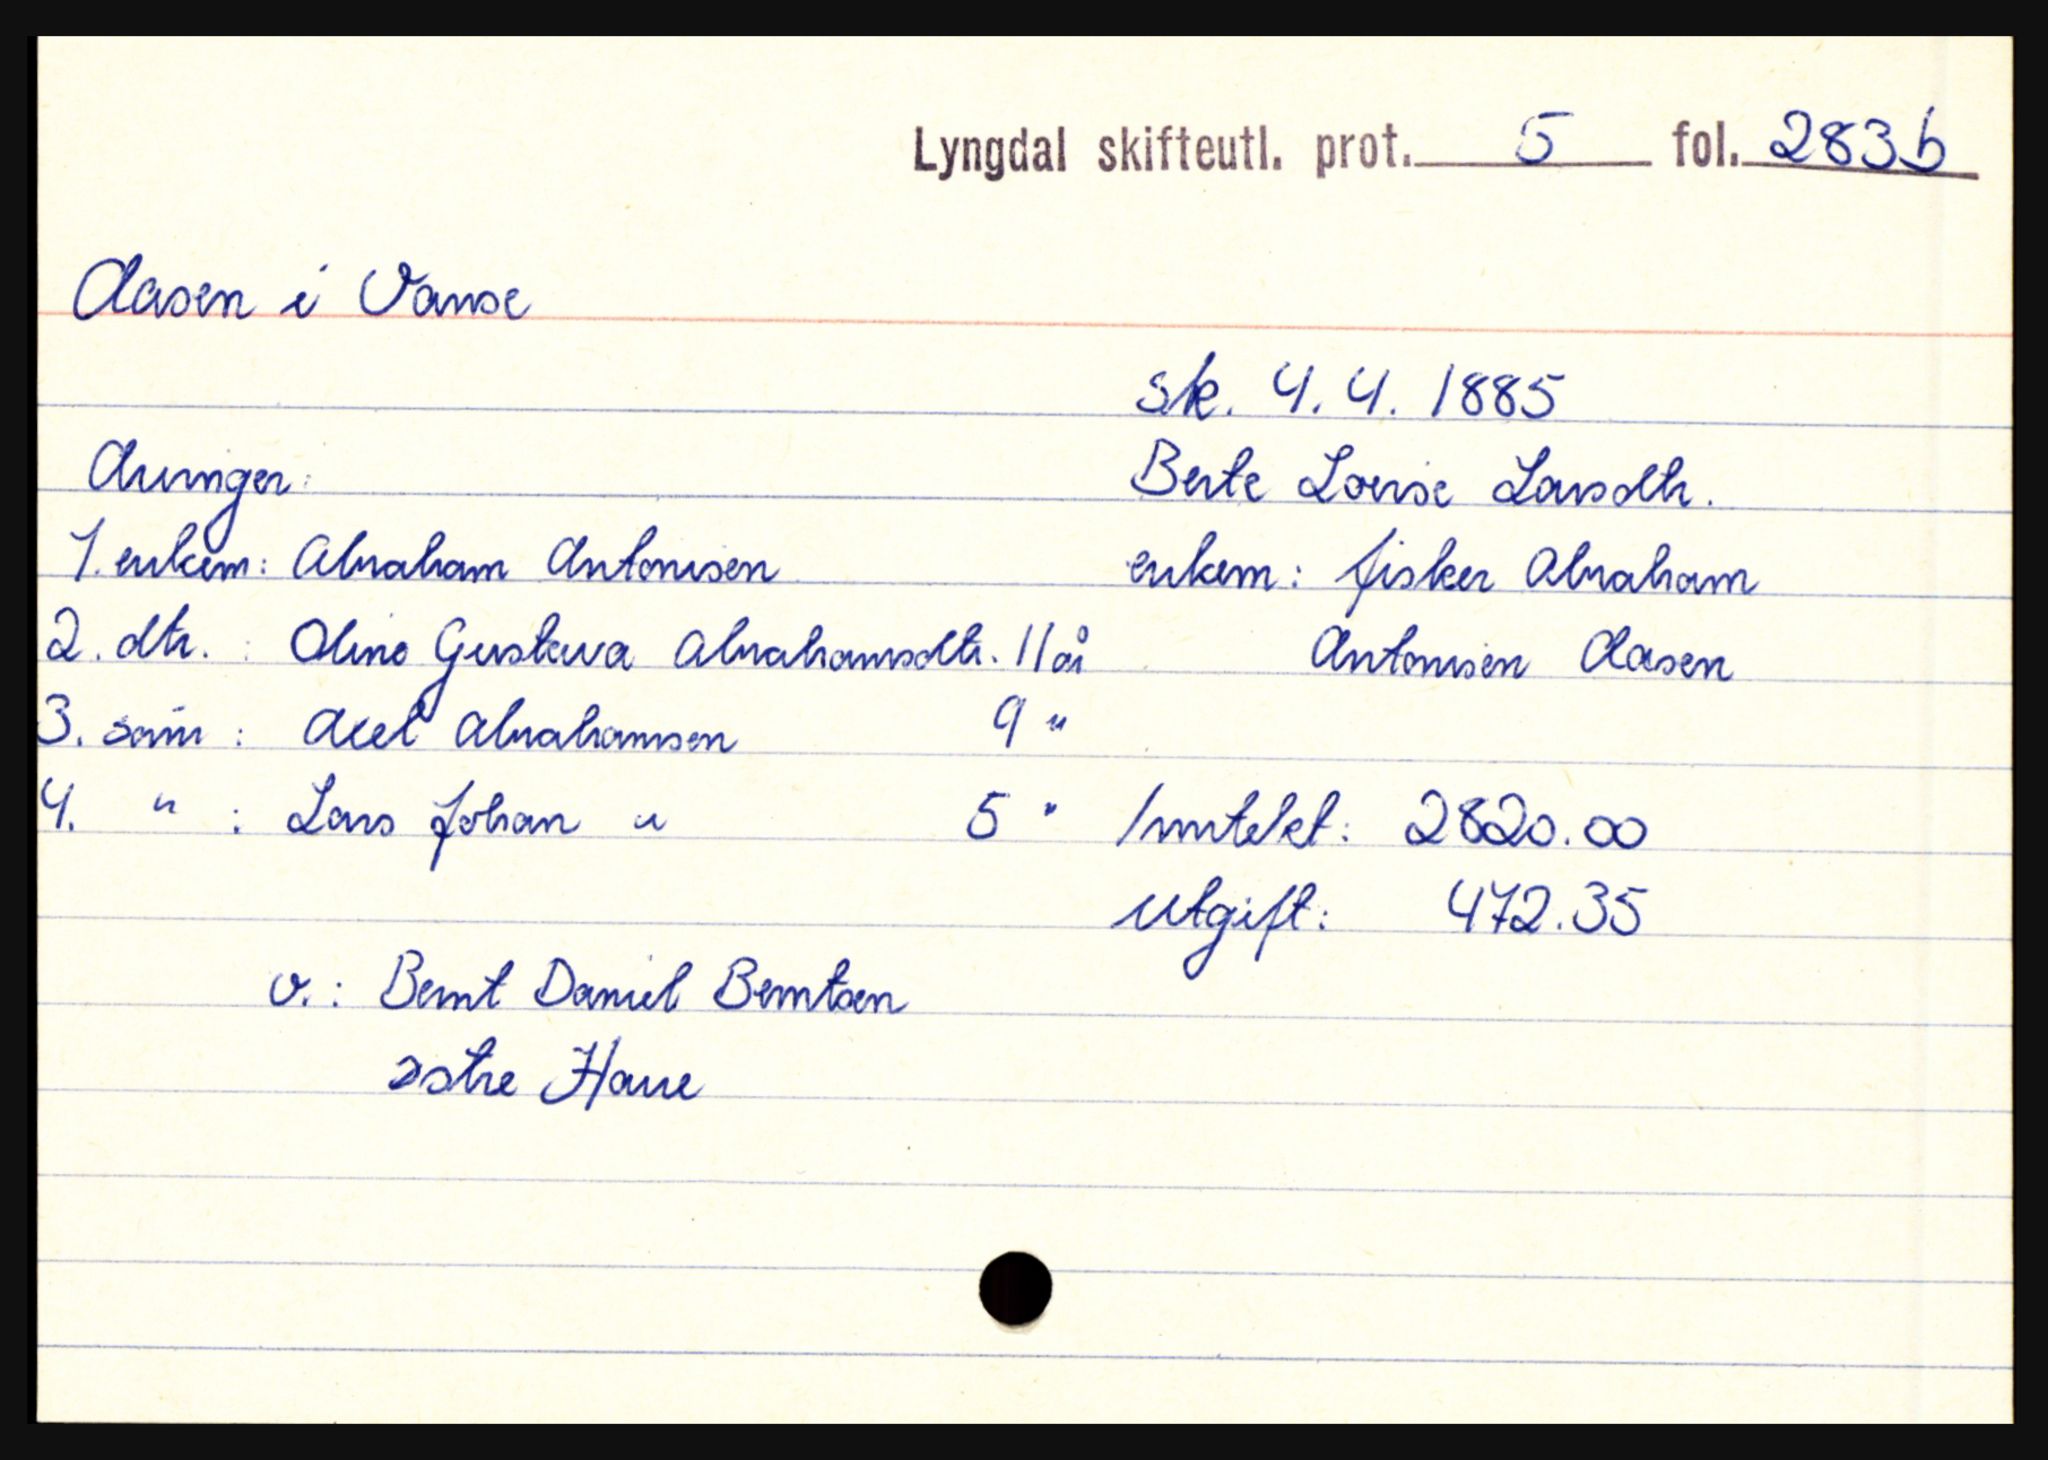 Lyngdal skifteutl. prot. 5 fol. 283b
Aasen i Vanse
sk. 4.4. 1885
Arvinger:
Berte Lovise Larsdtr.
1. enkem: Abraham Antonisen
enkem: fisker Abraham
2. dtr. : Oline Gustava Abrahamsdtr. 11 år
Antonisen Aasen
3. sønn : Axel Abrahamsen 9 "
4. " : Lars Johan " 5 "
Inntekt: 2820.00
Utgift: 472.35
v.: Bernt Daniel Berntsen
østre Haue